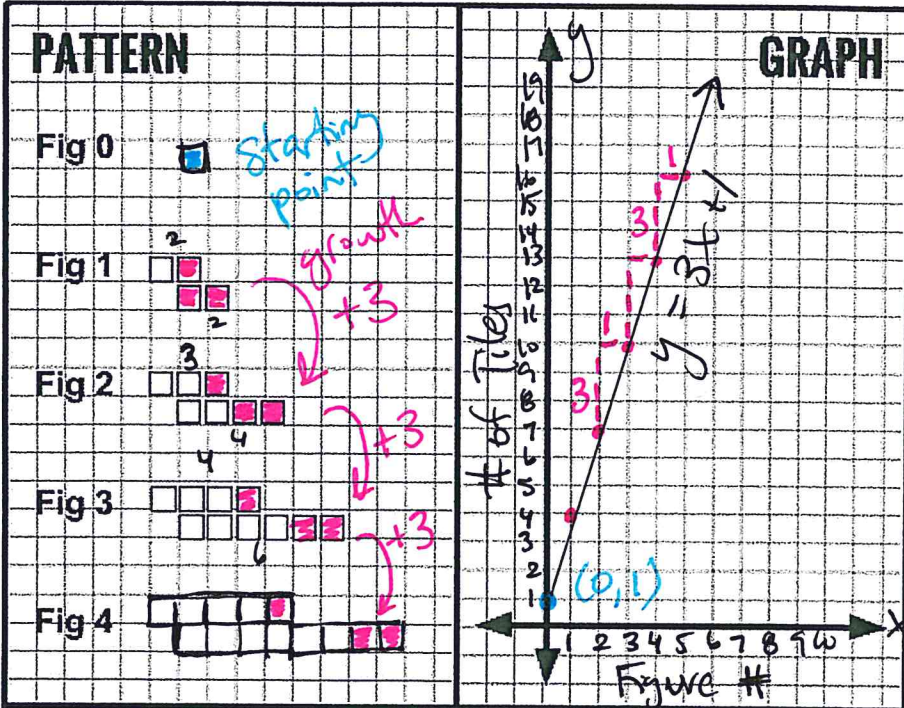 PATTERN
Fig 0
Starting
point
growth
2
Fig 1
2
+3
3
Fig 2
4
+3
4
Fig 3
6
+3
Fig 4
GRAPH
y
19
18
17
16
15
14
13
12
11
10
9
8
7
6
5
4
3
2
1
# of Tiles
1
3
1
3
y = 3x + 1
(0,1)
x
1 2 3 4 5 6 7 8 9 10
Figure #